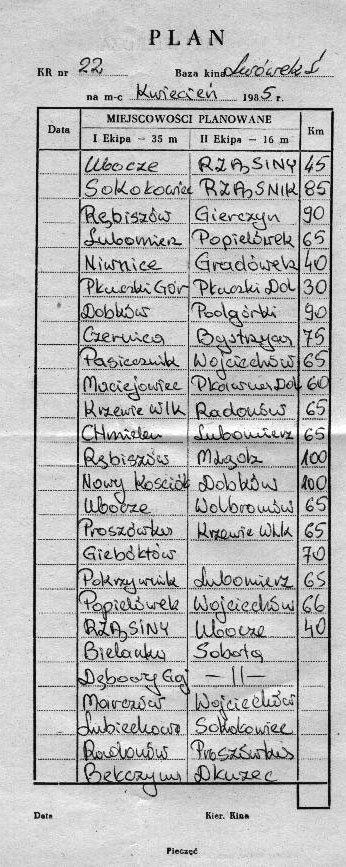 PLAN
KR nr 22 Baza kina Lwówek Ś
na m-c Kwiecień 1985 r.
MIEJSCOWOŚCI PLANOWANE
Data I Ekipa — 35 m II Ekipa — 16 m Km
Ubocze RZĄSINY 45
Sokołowiec RZĄŚNIK 85
Rębiszów Gierczyn 90
Lubomierz Popielówek 65
Niwnice Gradówek 40
Płuczki Gór Płuczki Dol 30
Dobków Podgórki 90
Czernica Bystrzyca 75
Pasiecznik Wojciechów 65
Maciejowiec Pławna Dol 60
Krzewie Wlk Radonów 65
CHmieleń Lubomierz 65
Rębiszów Mlądz 100
Nowy Kościół Dobków 100
Ubocze Wolbromów 65
Proszówka Krzewie Wlk 65
Giebółtów 70
Pokrzywnik Lubomierz 65
Popielówek Wojciechów 66
RZĄSINY Ubocze 40
Bielanka Sobota
Dębowy Gaj — II —
Marczów Wojciechów
Lubiechowa Sokołowiec
Radonów Proszówka
Bełczyna Dłużec
Data Kier. Kina
Pieczęć